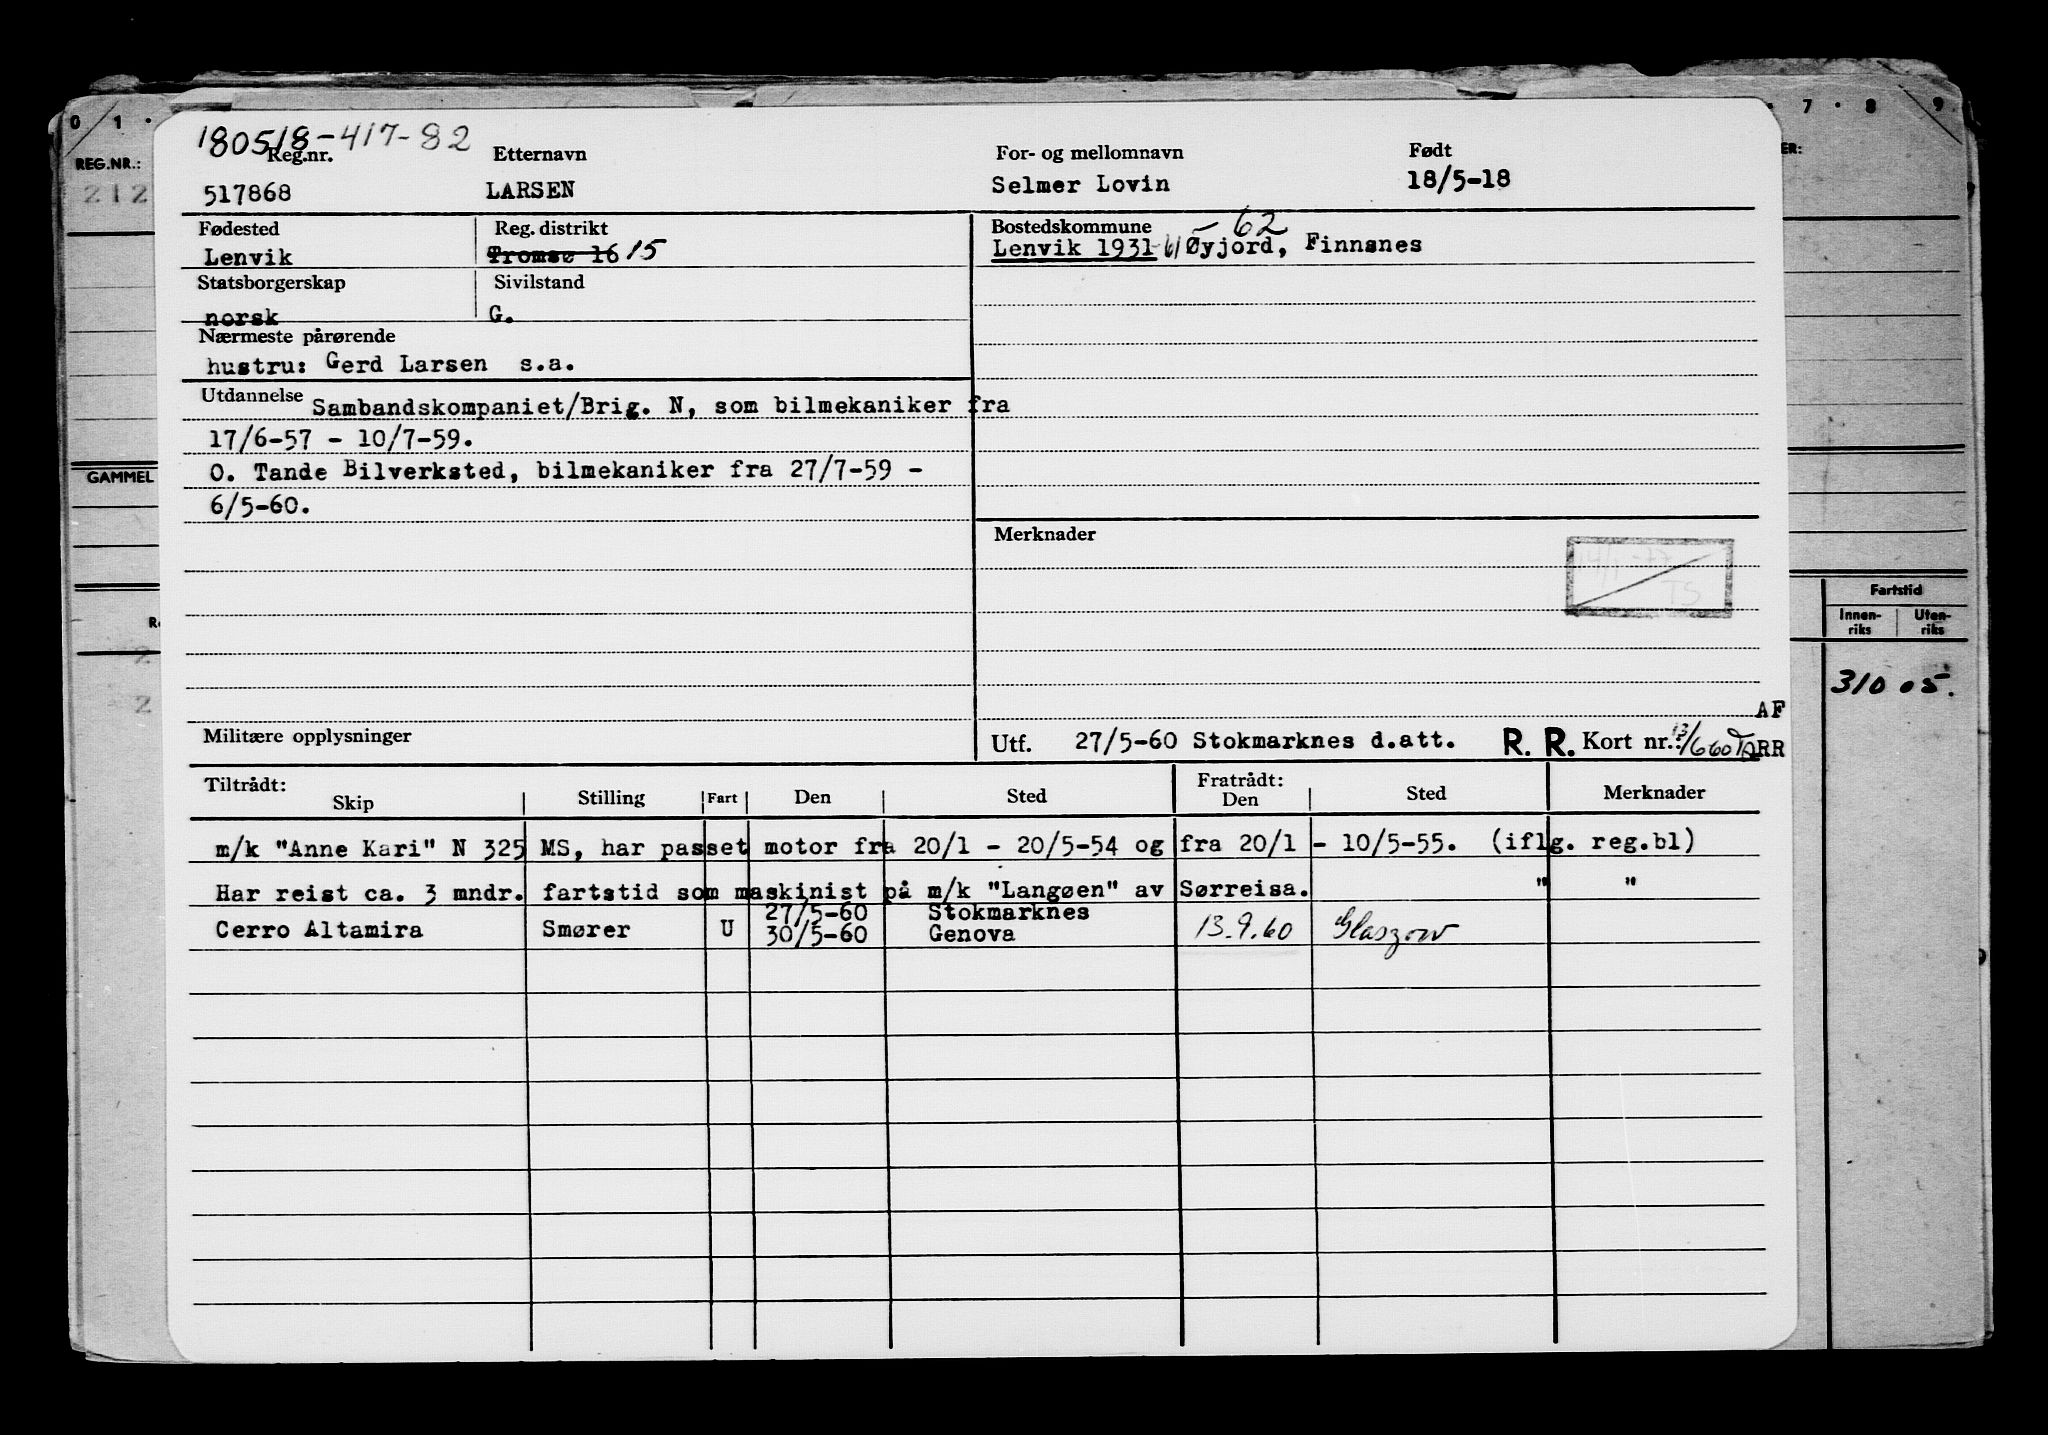 0 1 . 7 . 8 9
REG.NR.:
212
ER:
GAMMEL
Fartstid
Innen-riks Uten-riks
310 05.
180518-417-82
Reg.nr. Etternavn For- og mellomnavn Født
517868 LARSEN Selmer Lovin 18/5-18
Fødested Reg. distrikt Bostedskommune 62
Lenvik Tromsø 16 15 Lenvik 1931-61 Øyjord, Finnsnes
Statsborgerskap Sivilstand
norsk G.
Nærmeste pårørende
hustru: Gerd Larsen s.a.
Utdannelse Sambandskompaniet/Brig. N, som bilmekaniker fra
17/6-57 - 10/7-59.
O. Tande Bilverksted, bilmekaniker fra 27/7-59 -
6/5-60.
Merknader
14/1-77
TS
AF
Militære opplysninger Utf. 27/5-60 Stokmarknes d.att. R. R. Kort nr.: 13/6 60 RR
Tiltrådt: Fratrådt:
Skip Stilling Fart Den Sted Den Sted Merknader
m/k "Anne Kari" N 325 MS, har passet motor fra 20/1 - 20/5-54 og fra 20/1 - 10/5-55. (iflg. reg.bl)
Har reist ca. 3 mndr. fartstid som maskinist på m/k "Langøen" av Sørreisa. " "
27/5-60 Stokmarknes
Cerro Altamira Smører U 30/5-60 Genova 13.9.60 Glasgow